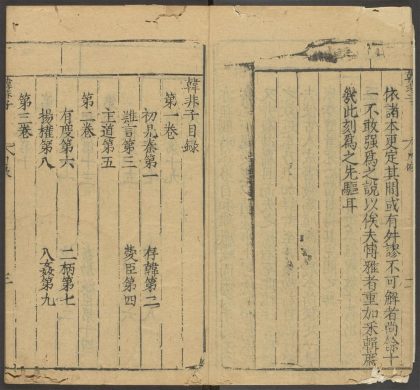 依諸本更定其間或有舛謬不可解者尚餘十
一不敢强為之說以俟夫博雅者重加采輯焉
㡬此刻為之先驅耳
韓非子目錄
第一卷
初見秦第一
存韓第二
難言第三
愛臣第四
主道第五
第二卷
有度第六
二柄第七
揚權第八
八姦第九
第三卷
韓非子